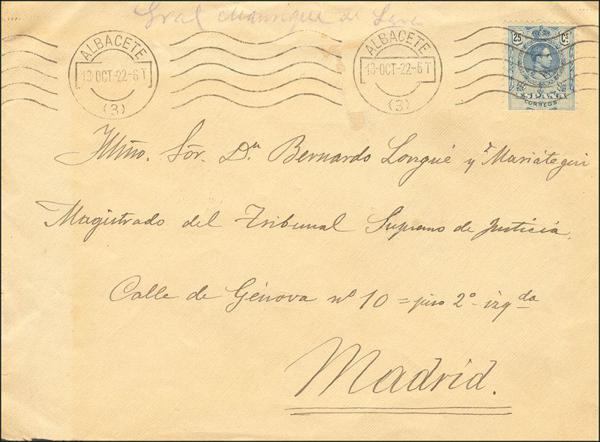 Gral Manrique de Lara
ALBACETE
10·OCT·22-6T
(3)
ALBACETE
10·OCT·22-6T
(3)
25 Cs
ESPAÑA
CORREOS
Illmo. Sór. Dn Bernardo Longué y Mariátegui
Magistrado del Tribunal Supremo de Justicia.
Calle de Génova nº 10 = piso 2º izqda
Madrid.